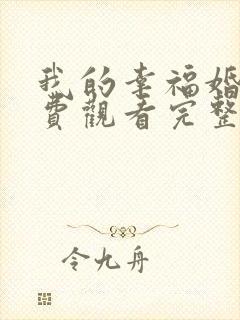 我的幸福婚
費觀看完整
令九舟